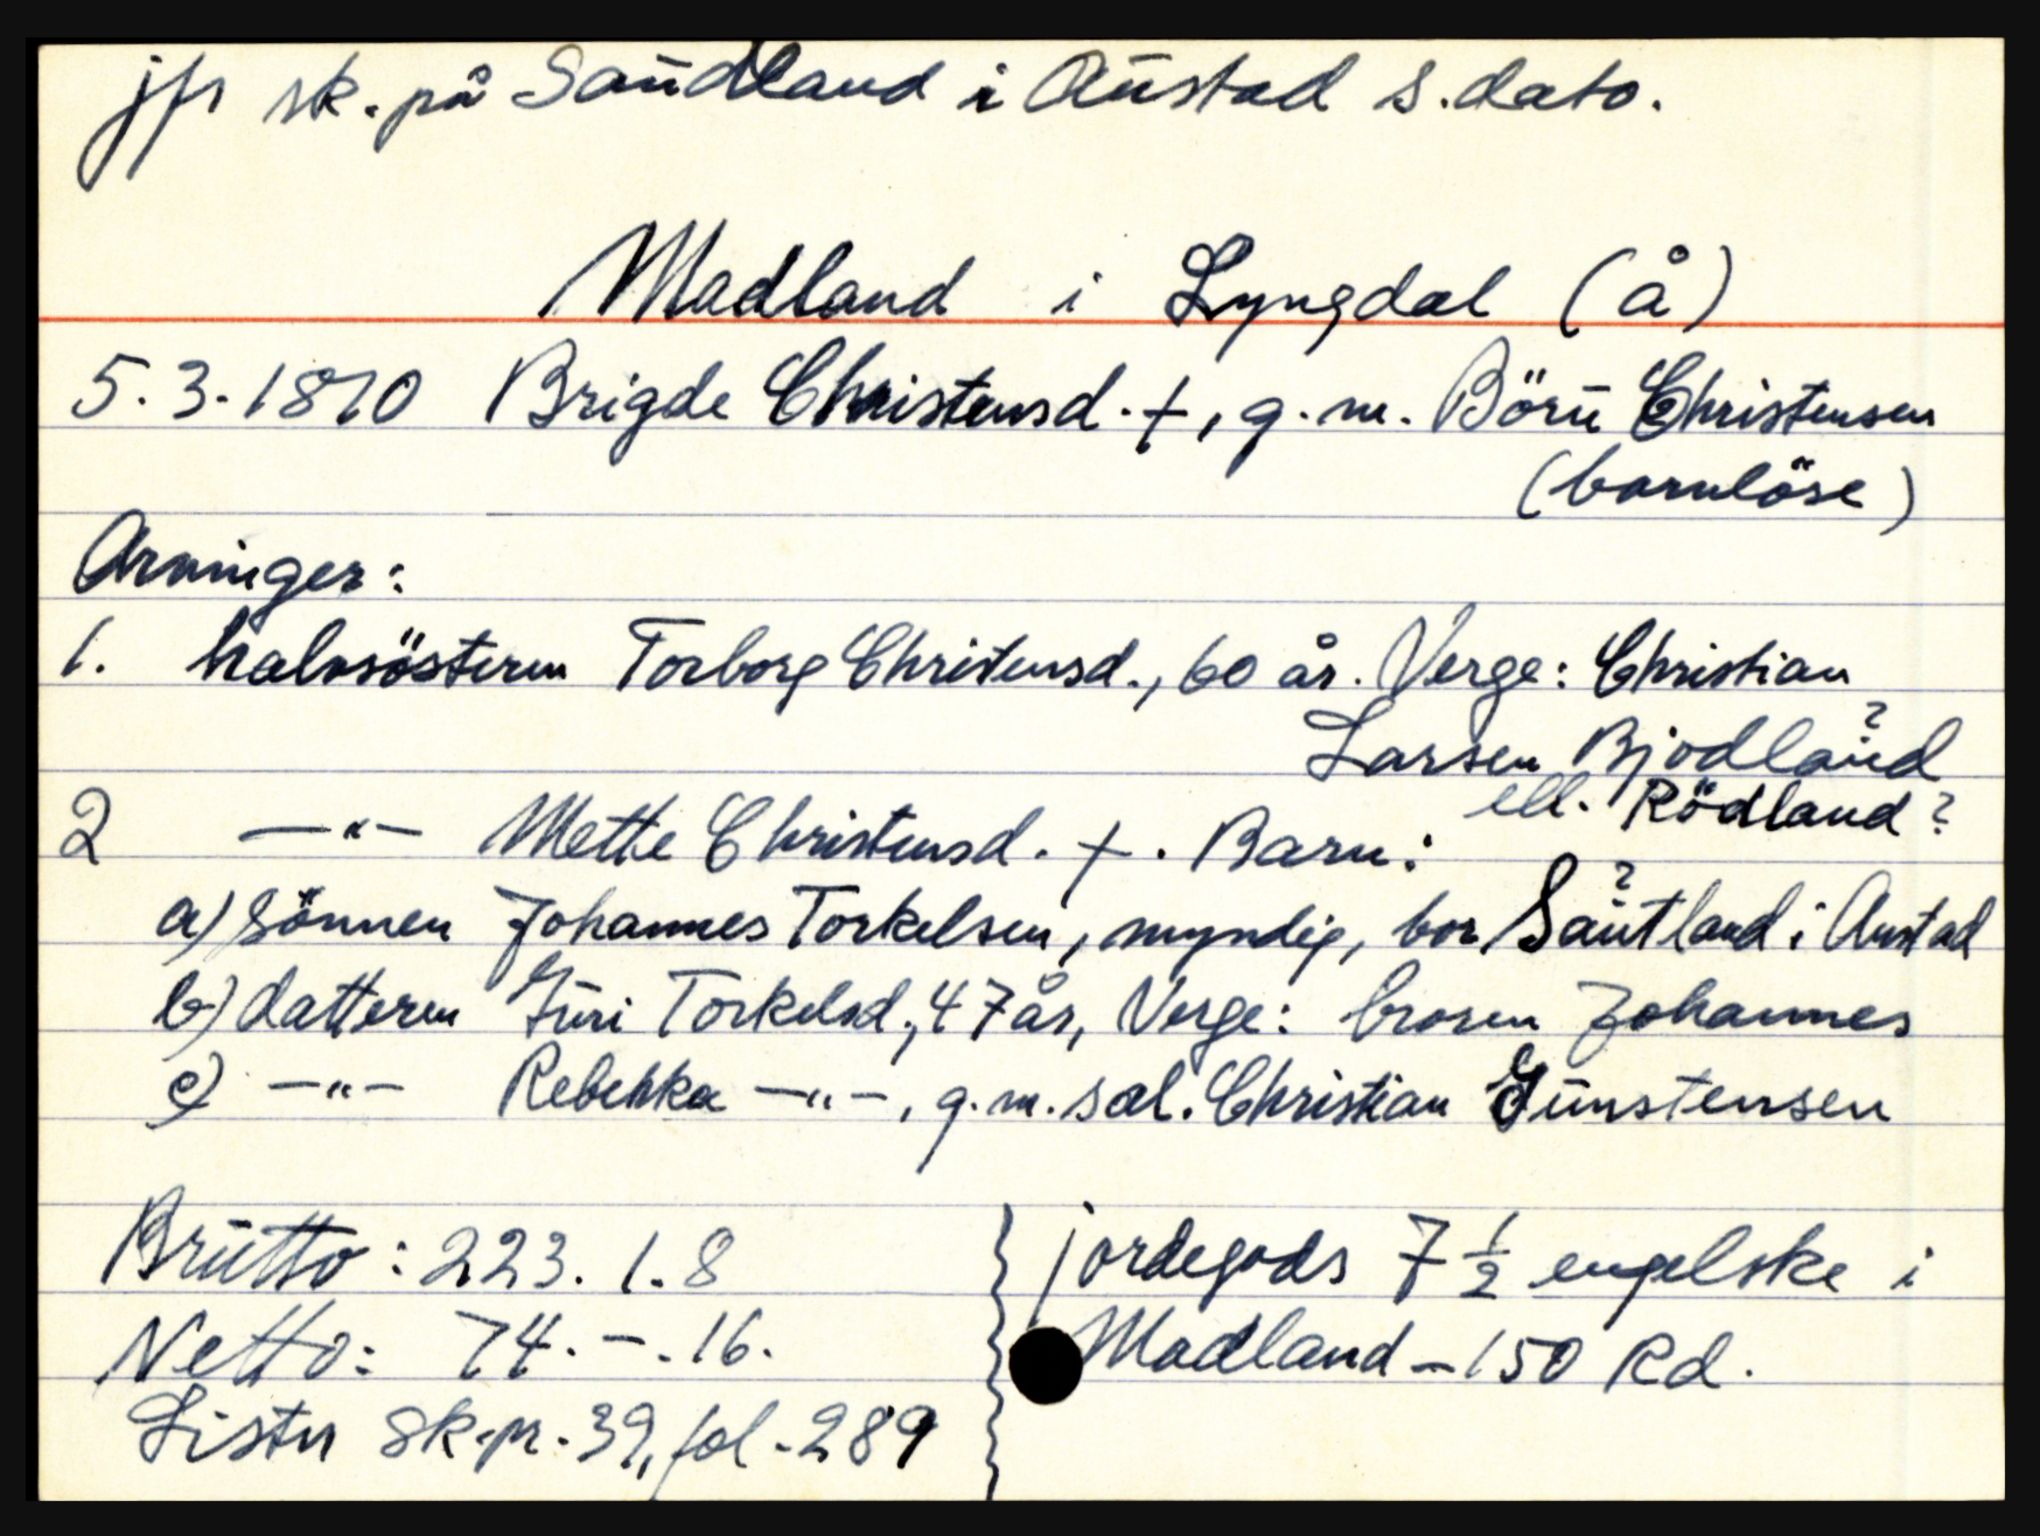 jfr sk. på Saudland i Austad s. dato.
Madland i Lyngdal (Å)
5.3.1810 Brigde Christensd. +, g.m. Böru Christensen
(barnlöse)
Arvinger:
1. halvsösteren Torborg Christensd., 60 år. Verge: Christian
Larsen Bjodland ?
ell. Rödland ?
2 —"— Mette Christensd. +. Barn:
a) sönnen Johannes Torkelsen, myndig, bor Sautland ? i Austad
b) datteren Guri Torkelsd., 47 år, Verge: broren Johannes
c) —"— Rebekka —"—, g.m. sal. Christian Gunstensen
Brutto: 223. 1. 8
Netto: 74. –. 16.
Lister sk.pr. 39, fol. 289
jordegods 7 1/2 engelske i
Madland – 150 Rd.